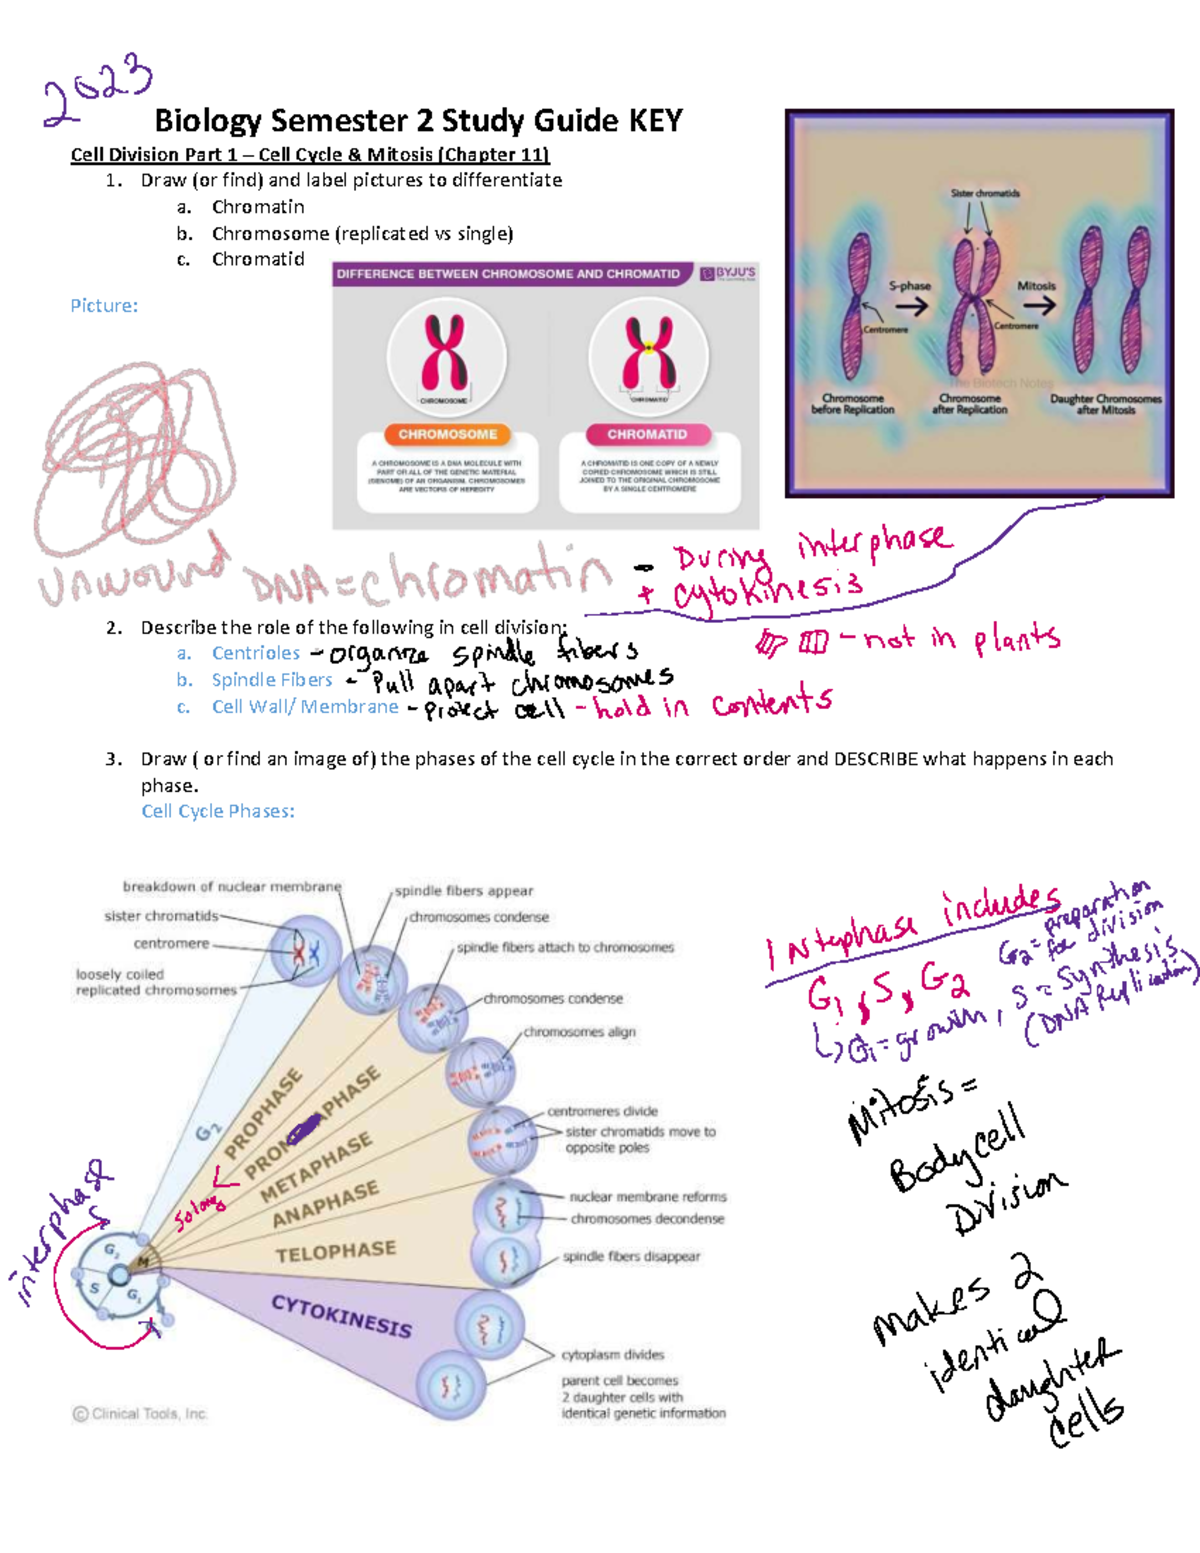 2023
Biology Semester 2 Study Guide KEY
Cell Division Part 1 – Cell Cycle & Mitosis (Chapter 11)
1. Draw (or find) and label pictures to differentiate
a. Chromatin
b. Chromosome (replicated vs single)
c. Chromatid
Picture:
DIFFERENCE BETWEEN CHROMOSOME AND CHROMATID
BYJU'S
The Learning App
CHROMOSOME
CHROMATID
CHROMOSOME
CHROMATID
A CHROMOSOME IS A DNA MOLECULE WITH
PART OR ALL OF THE GENETIC MATERIAL
(GENOME) OF AN ORGANISM. CHROMOSOMES
ARE VECTORS OF HEREDITY
A CHROMATID IS ONE COPY OF A NEWLY
COPIED CHROMOSOME WHICH IS STILL
JOINED TO THE ORIGINAL CHROMOSOME
BY A SINGLE CENTROMERE
Sister chromatids
S-phase
Mitosis
Centromere
Centromere
The Biotech Notes
Chromosome
before Replication
Chromosome
after Replication
Daughter Chromosomes
after Mitosis
unwound DNA = chromatin - During interphase
+ cytokinesis
2. Describe the role of the following in cell division:
a. Centrioles - organize spindle fibers - not in plants
b. Spindle Fibers - Pull apart chromosomes
c. Cell Wall/ Membrane - Protect cell - hold in contents
3. Draw ( or find an image of) the phases of the cell cycle in the correct order and DESCRIBE what happens in each
phase.
Cell Cycle Phases:
breakdown of nuclear membrane
sister chromatids
centromere
loosely coiled
replicated chromosomes
spindle fibers appear
chromosomes condense
spindle fibers attach to chromosomes
chromosomes condense
chromosomes align
centromeres divide
sister chromatids move to
opposite poles
nuclear membrane reforms
chromosomes decondense
spindle fibers disappear
cytoplasm divides
parent cell becomes
2 daughter cells with
identical genetic information
G2
PROPHASE
PROM APHASE
METAPHASE
ANAPHASE
TELOPHASE
CYTOKINESIS
interphase
G2
M
S
G1
© Clinical Tools, Inc.
Intephase includes
G1, S, G2
G2 = preparation
for division
G1 = growth, S = Synthesis
(DNA Replication)
Mitosis =
Body cell
Division
makes 2
identical
daughter
cells